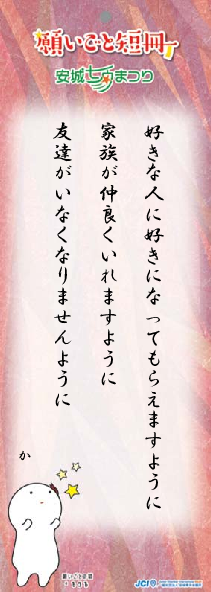 願いごと短冊
安城七夕まつり
好きな人に好きになってもらえますように
家族が仲良くいれますように
友達がいなくなりませんように
か
JCI